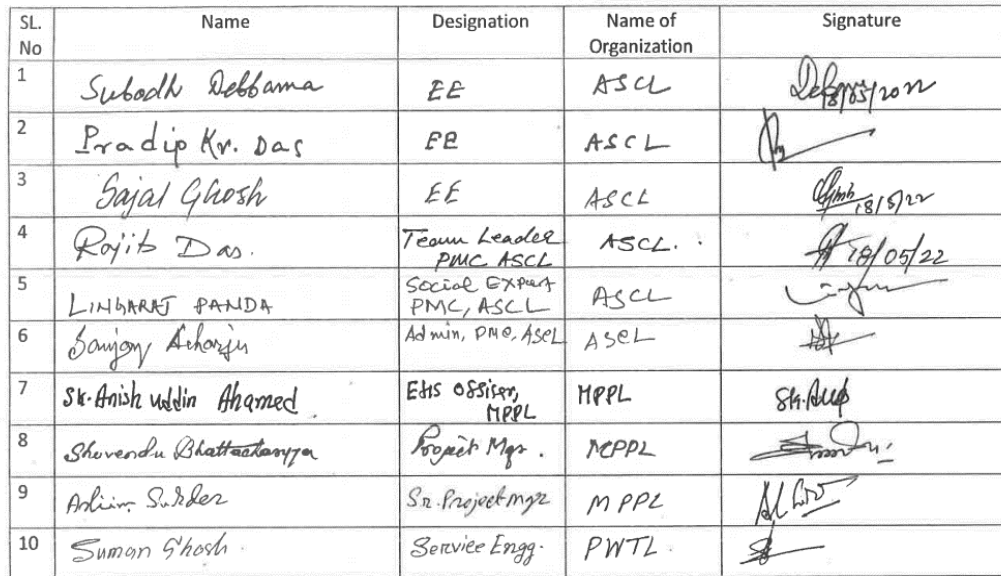 SL. No Name Designation Name of Organization Signature
1 Subodh Debbarma EE ASCL 18/05/2022
2 Pradip Kr. Das EE ASCL
3 Sajal Ghosh EE ASCL 18/5/22
4 Rajib Das. Team Leader PMC ASCL ASCL. 18/05/22
5 LINGARAJ PANDA Social Expert PMC, ASCL ASCL
6 Sanjoy Acharjee Admin, PMC, ASCL ASCL
7 Sk. Anish uddin Ahamed EHS Offiser, MPPL MPPL
8 Shuvendu Bhattacharyya Project Mgr. MPPL
9 Sr. Project mgr MPPL
10 Suman Ghosh. Service Engg. PWTL